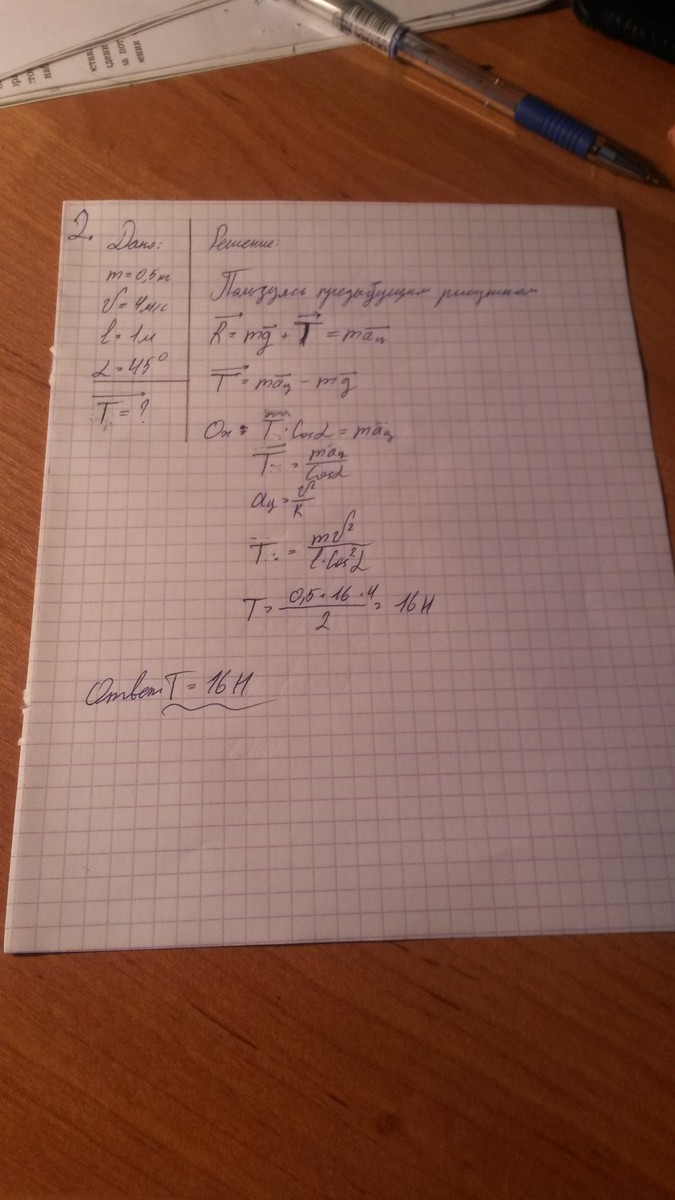 2.
Дано:
m = 0,5 кг
v = 4 м/с
l = 1 м
α = 45°
T = ?
Решение:
Пользуясь предыдущим рисунком
R = mg + T = maц
T = maц - mg
Ox: T · Cosα = maц
T = maц / Cosα
aц = v² / R
T = mv² / l·Cos²α
T = 0,5 · 16 · 4 / 2 = 16 Н
Ответ T = 16 Н